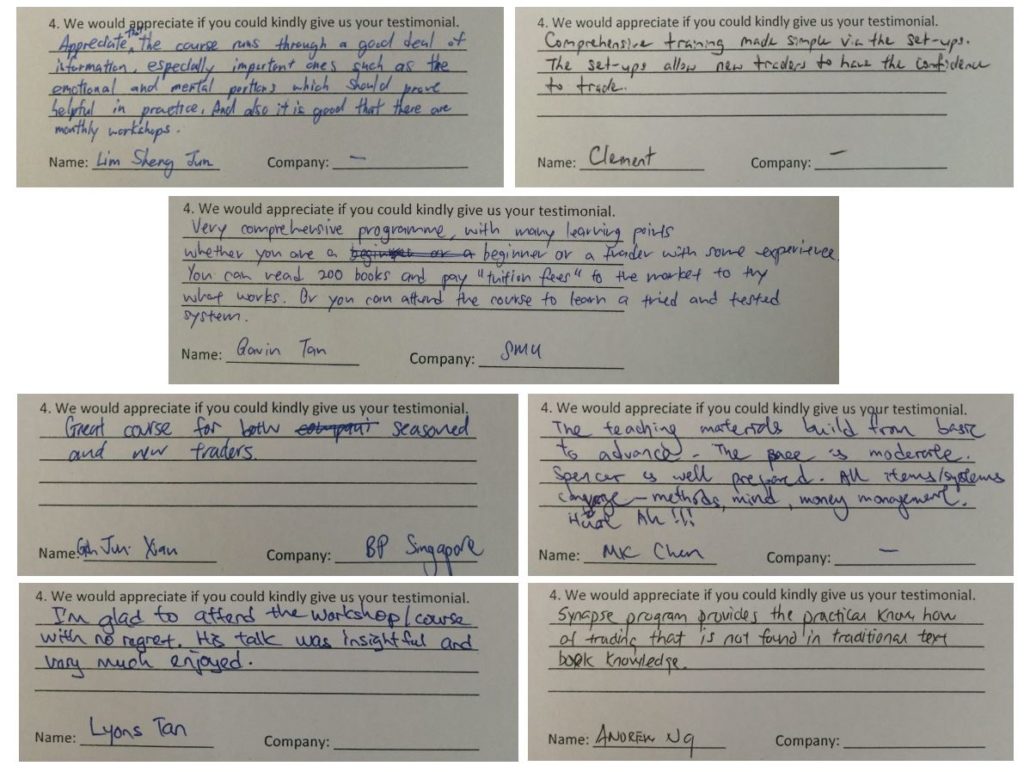 4. We would appreciate if you could kindly give us your testimonial.
Appreciate that the course runs through a good deal of
information, especially important ones such as the
emotional and mental portions which should prove
helpful in practice. And also it is good that there are
monthly workshops.
Name: Lim Sheng Jun Company: —
4. We would appreciate if you could kindly give us your testimonial.
Comprehensive training made simple via the set-ups.
The set-ups allow new traders to have the confidence
to trade.
Name: Clement Company: —
4. We would appreciate if you could kindly give us your testimonial.
Very comprehensive programme, with many learning points
whether you are a beginner or a beginner or a trader with some experience.
You can read 200 books and pay "tuition fees" to the market to try
what works. Or you can attend the course to learn a tried and tested
system.
Name: Gavin Tan Company: SMU
4. We would appreciate if you could kindly give us your testimonial.
Great course for both seasoned
and new traders.
Name: Goh Jun Xian Company: BP Singapore
4. We would appreciate if you could kindly give us your testimonial.
The teaching materials build from basic
to advance. The pace is moderate.
Spencer is well prepared. All items/systems
converge – methods, mind, money management.
Huat Ah!!!
Name: MK Chen Company: —
4. We would appreciate if you could kindly give us your testimonial.
I'm glad to attend the workshop/course
with no regret. His talk was insightful and
very much enjoyed.
Name: Lyons Tan Company:
4. We would appreciate if you could kindly give us your testimonial.
Synapse program provides the practical know how
of trading that is not found in traditional text
book knowledge.
Name: ANDREW Ng Company: